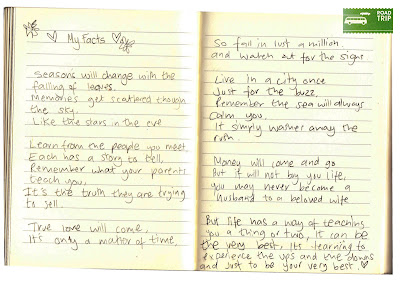 My Facts
Seasons will change with the
falling of leaves.
Memories get scattered though
the sky.
Like the stars in the eve
Learn from the people you meet
Each has a story to tell,
Remember what your parents
teach you,
It's the truth they are trying
to sell.
True love will come,
It's only a matter of time,
So fall in lust a million
and watch out for the signs
Live in a city once
Just for the buzz.
Remember the sea will always
calm you.
It simply washes away the
Money will come and go
But it will not by you life,
You may never become a
husband to a beloved wife
But life has a way of teaching
you a thing or two, it can be
the very best, its learning to
experience the ups and the downs
and just to be your very best.
ROAD
TRIP